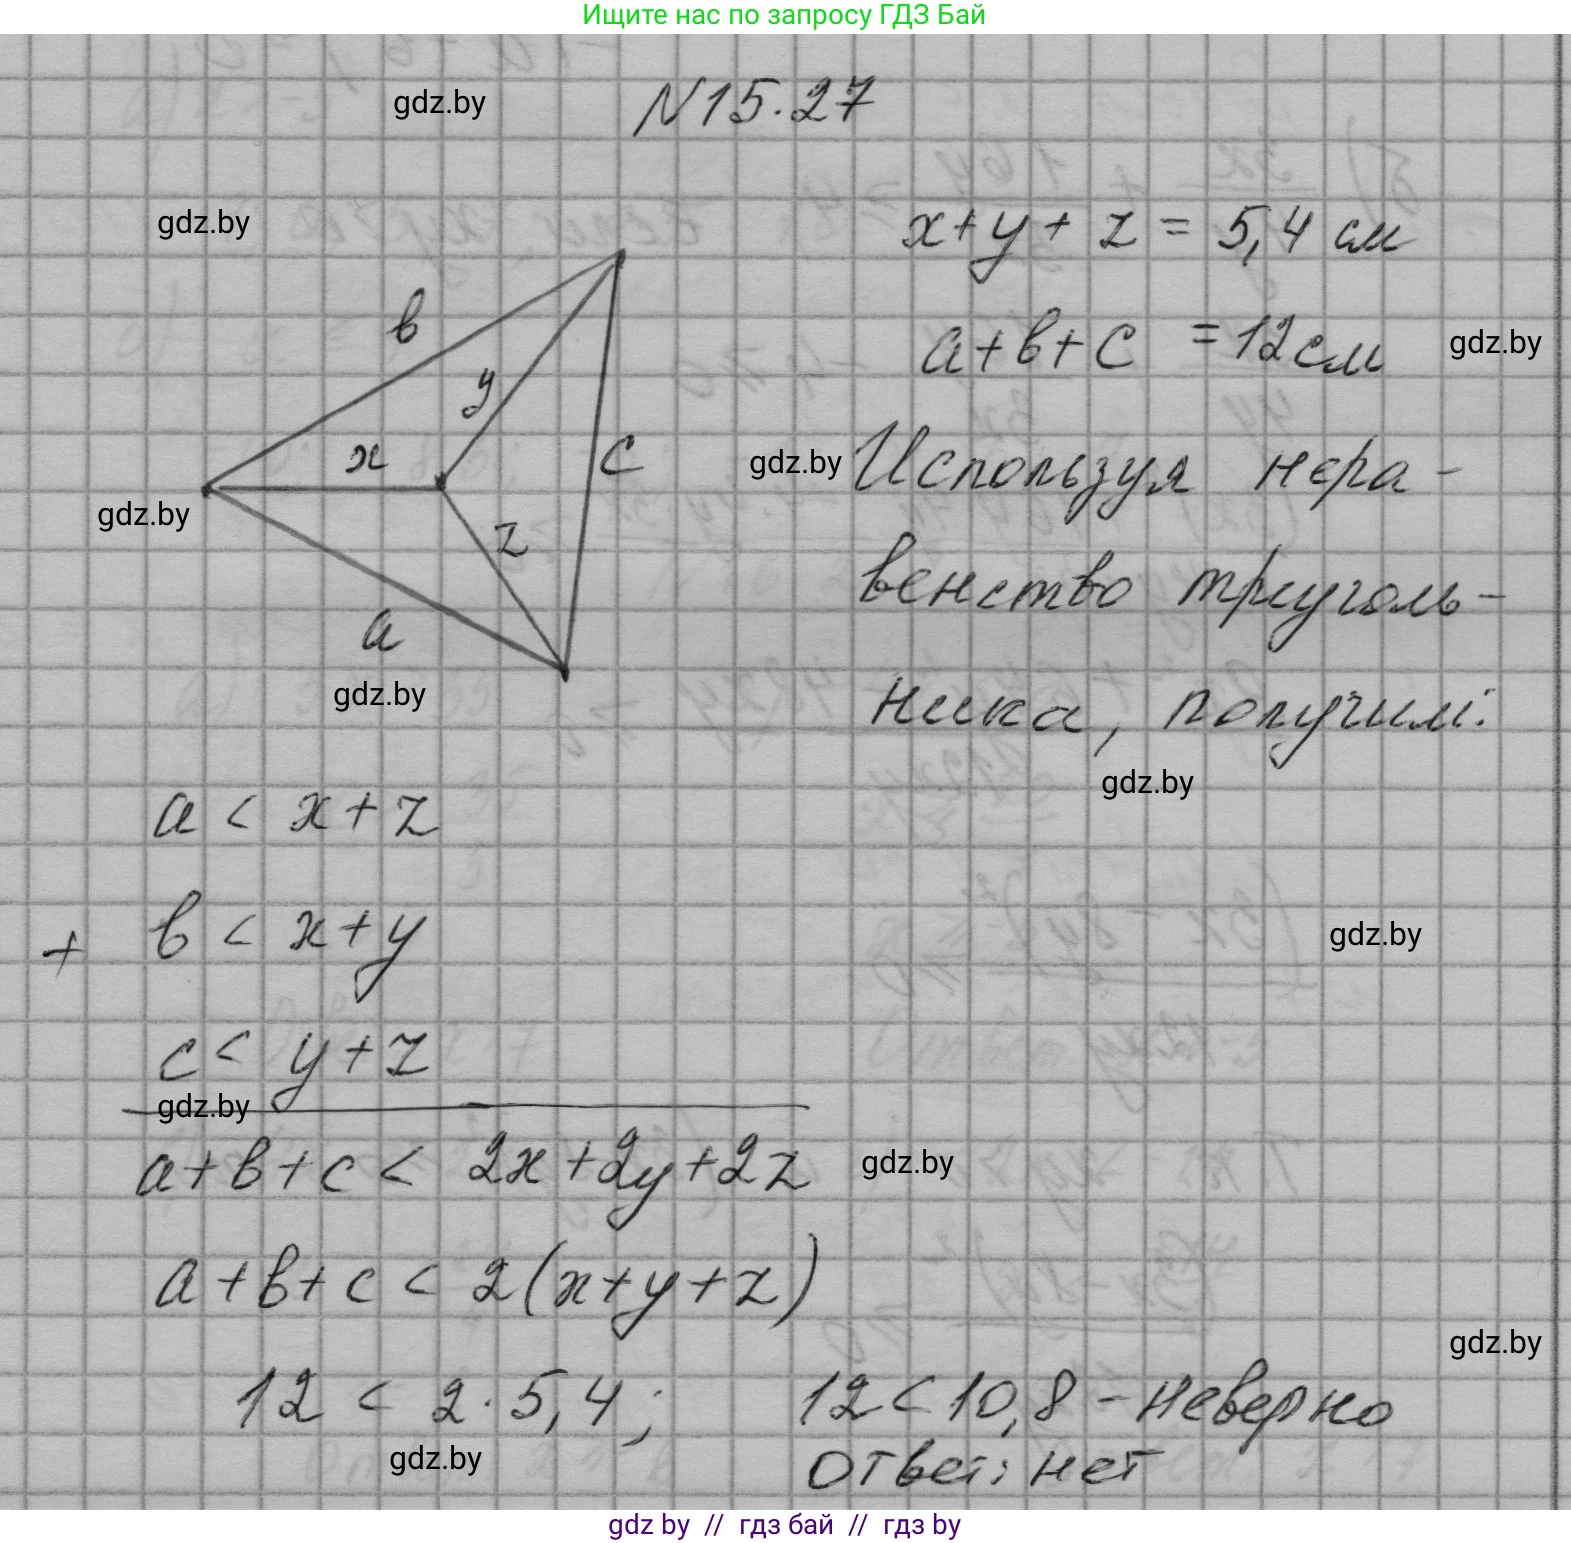 Ищите нас по запросу ГДЗ Бай
gdz.by
N15.27
gdz.by
x+y+z = 5,4 см
a+в+c = 12см
gdz.by
в
y
x
c
z
a
gdz.by
gdz.by
Используя нера-
венство треуголь-
ника, получим:
gdz.by
gdz.by
a < x+z
+ в < x+y
gdz.by
c < y+z
gdz.by
a+в+c < 2x+2y+2z
gdz.by
a+в+c < 2(x+y+z)
gdz.by
12 < 2·5,4; 12<10,8 - неверно
gdz.by
Ответ: нет
gdz by // гдз бай // гдз by